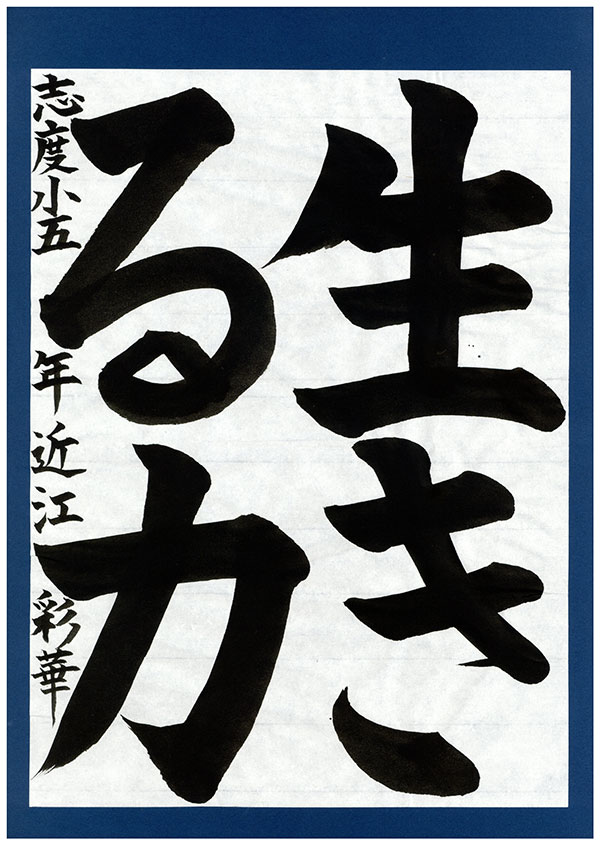 生き
る力
志度小五年近江彩華